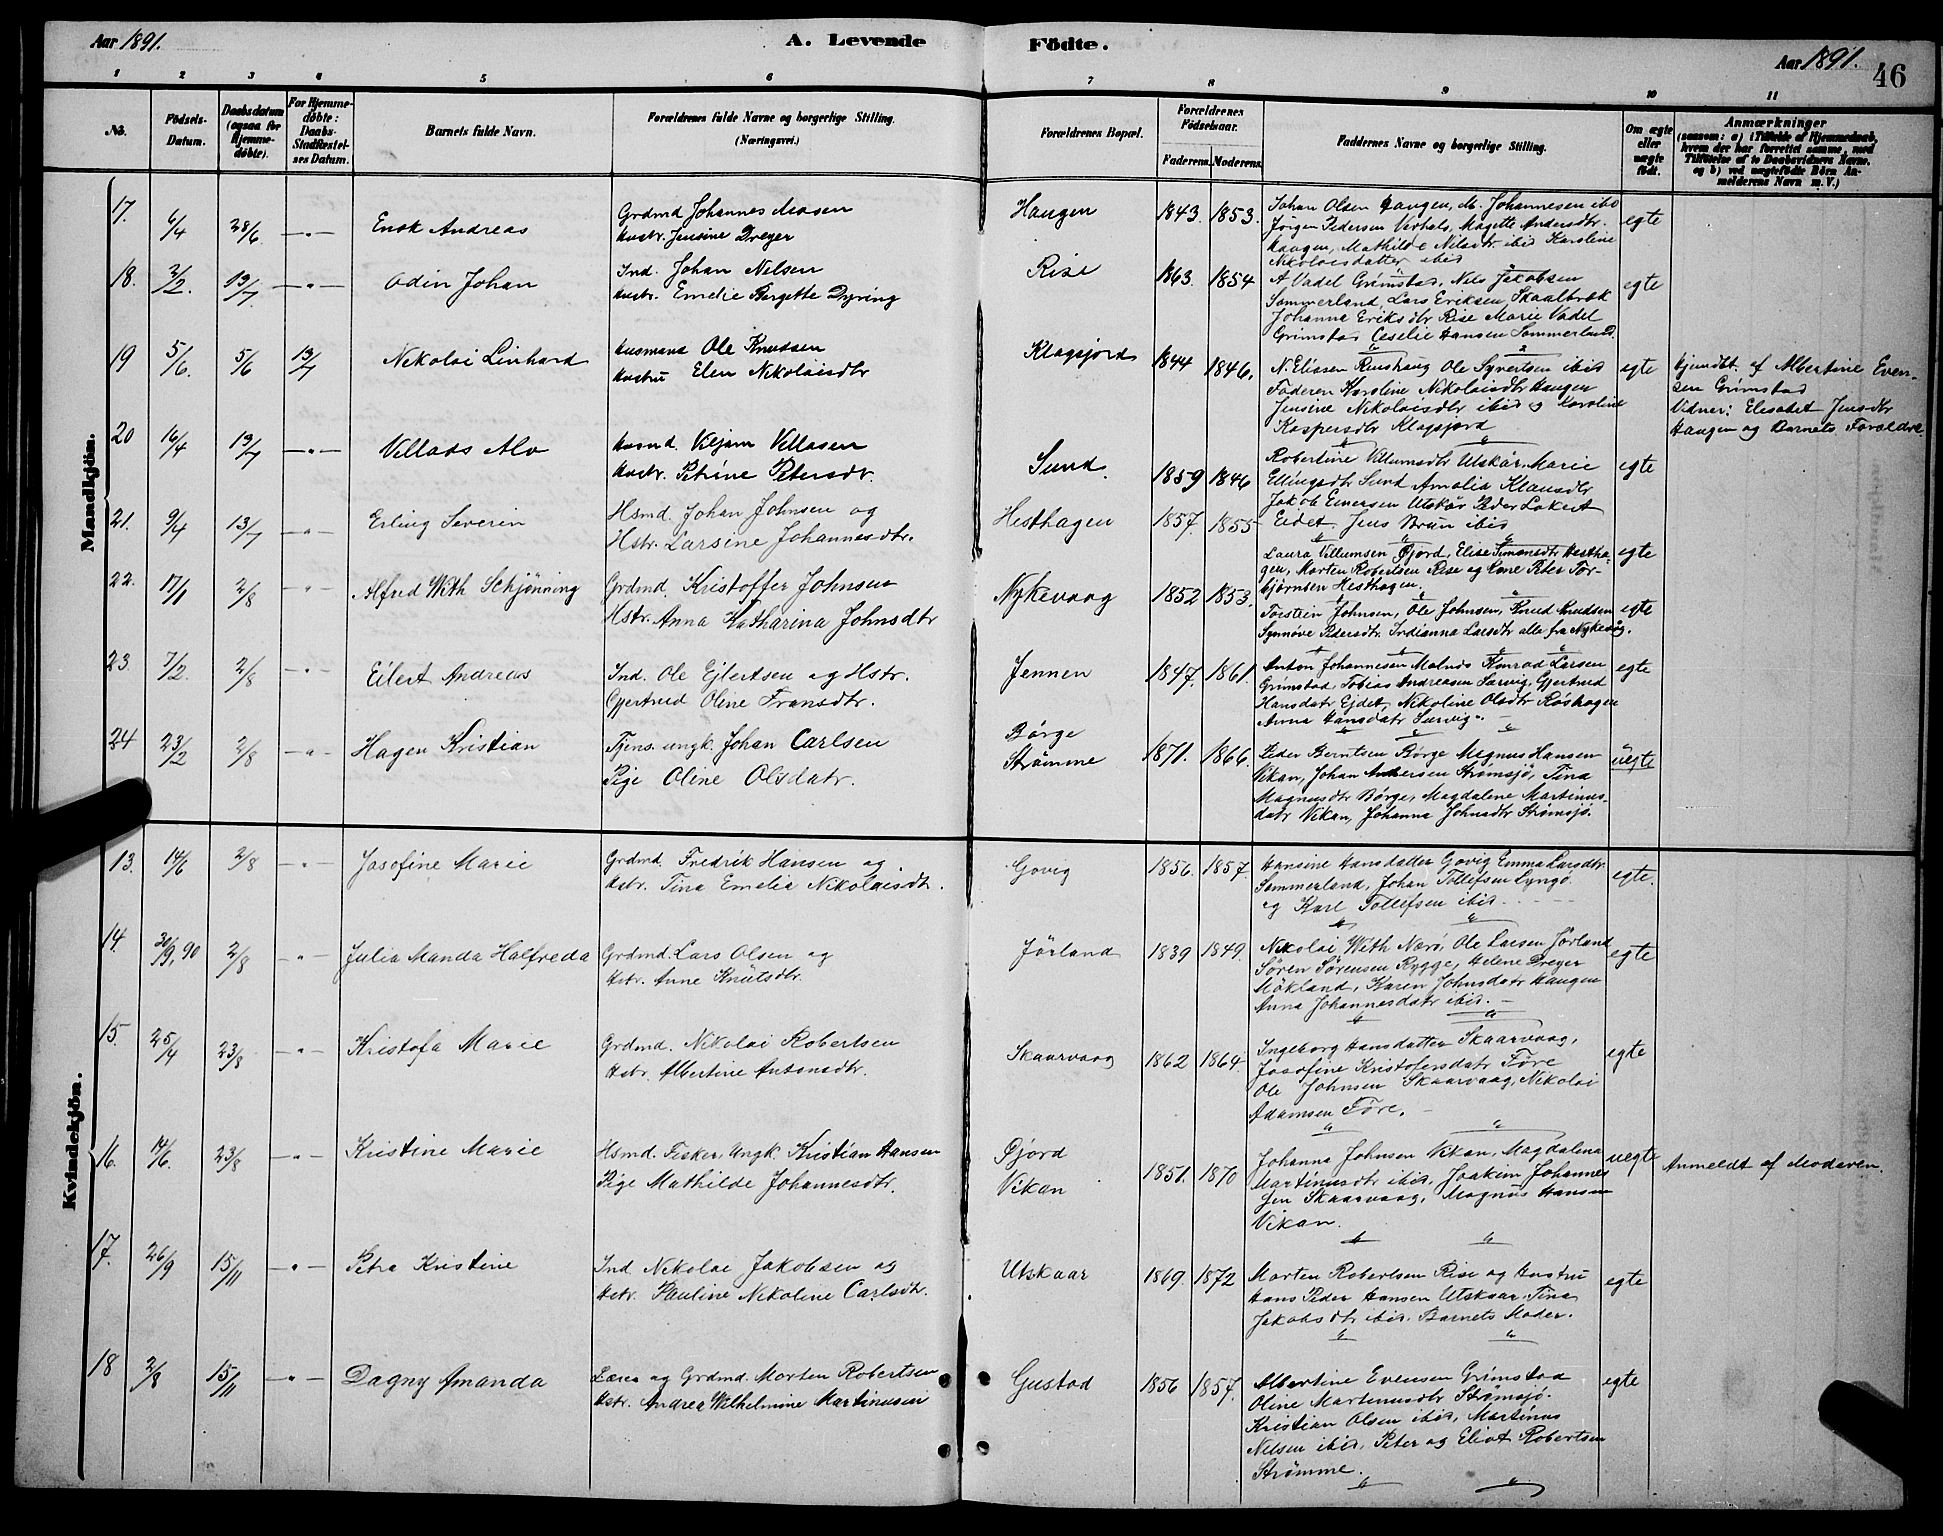 Aar 1891.
A. Levende Födte.
Aar 1891.
46
1 2 3 4 5 6 7 8 9 10 11
No.
Födsels-Datum.
Daabsdatum (ogsaa for Hjemmedöbte).
For Hjemmedöbte: Daabs-Stadfæstelses Datum.
Barnets fulde Navn.
Forældrenes fulde Navne og borgerlige Stilling. (Næringsvei.)
Forældrenes Bopæl.
Forældrenes Födselsaar.
Faderens. Moderens.
Faddernes Navne og borgerlige Stilling.
Om ægte eller uægte födt.
Anmærkninger
(saasom: a) i Tilfælde af Hjemmedaab, hvem der har forrettet samme, med Tilföielse af to Daabsvidners Navne, og b) ved uægtefödte Börn Anmelderens Navn m. V.)
Mandkjön.
17. 6/4 28/6 — " — Enok Andreas
Grdmd Johannes
Hustr. Jensine Dreyer
Haugen 1843. 1853.
Johan Olsen Haugen, M. Johannesen ibd
Jörgen Pedersen Magette Andersdtr.
Haugen, Mathilde Nilsdtr ibid Karoline
Nikolaisdatter ibid
egte
18. 2/2. 19/7 — " — Odin Johan
Ind. Johan Nelsen
Hustr. Emelie Bergette Dyring
Rise 1863. 1854
A Vadel Grimstad, Nils Jakobsen
Sommerland, Lars Eriksen, Skaalbrak
Johanna Eriksdtr Rise Marie Vadel
Grimstad Ceselie Hansen Sommerland.
egte
19 5/6. 5/6 13/7 Nikolai Linhard
Husmand Ole Knutsen
Hustru Elen Nikolaisdtr
Klogsjord 1844 1846.
N. Eliasen Ole Syvertsen ibid
Faderen Karoline Nikolaisdtr Haugen
Jensine Nikolaisdtr ibid og Karoline
Kaspersdtr Klogsjord
egte
Hjemdbt. af Albertine Evensen Grimstad
Vidner: Elisabet Jensdtr
Haugen og Barnets Forældre.
20 16/4 19/7 — " — Villads Alv
Husmd. Viljam Villasen
Hustr. Petrine Petersdr.
Sund. 1859 1846
Robertine Villumsdtr Utskår, Marie
Ellingsdtr Sund Amalia Klausdtr
Jakob Emersen Utskår Peder Lokert
Eidet. Jens Brun ibid
egte
21. 9/4 13/7 — " — Erling Severin
Hsmd. Johan Johnsen og
Hstr. Larsine Johannesdtr.
Hesthagen 1857. 1855
Laura Villumsen Øjord, Elise Simonsdtr Hesthagen, Morten Robertsen Rise og Peter Torbjörnsen Hesthagen.
egte
22. 17/1 2/8 " Alfred With Schjønning
Grdmd. Kristoffer Johnsen
Hstr. Anna Katharina Johnsdtr
Nykevaag 1852 1853.
Torstein Johnsen, Ole Johnsen, Knud Knudsen
Synnöve Pedersdtr. Indianna Larsdtr alle fra Nykevåg.
egte
23. 7/2. 2/8 — " — Eilert Andreas
Ind. Ole Ejlertsen og Hstr.
Gjertrud Oline Fransdtr.
Jennen 1847. 1861.
Anton Johannesen Malnes Konrad Larsen
Grimstad, Tobias Andreasen Sarvig, Gjertrud
Hansdatr Ejdet, Nikoline Olsdtr Röshagen
Anna Hansdatr Sarvig.
egte
24 23/2 2/8 — " — Hagen Kristian
Tjens. ungk. Johan Carlsen
Pige Oline Olsdatr.
Börge
Strömme
1871. 1866.
Peder Berntsen Börge Magnus Hansen
Vikan, Johan Andersen Strömsjö, Tina
Magnusdtr Börge, Magdalene Martinusdatr Vikan, Johanna Johnsdtr Strömsjö.
uegte
Kvindekjön.
13. 14/6 2/8 — " — Josofine Marie
Grdmd. Fredrik Hansen og
Hstr. Tina Emelia Nikolaisdtr.
Govig 1856. 1857.
Hansine Hansdatter Govig Emma Larsdtr.
Sommerland, Johan Tollefsen Lyngö.
og Karl Tollefsen ibid
egte.
14. 30/9, 90 2/8 — " — Julia Manda Halfreda
Grdmd. Lars Olsen og
Hstr. Anne Knutsdtr.
Jörland 1839 1849.
Nikolai With Narö, Ole Larsen Jörland
Sören Sörensen Rygge, Helene Dreyer
Mökland, Karen Johnsdatr Haugen
Anna Johannesdatr ibid.
egte
15. 25/4 23/8 — " — Kristofa Marie
Grdmd. Nikolai Robertsen
Hstr. Albertine Antonsdtr.
Skaarvaag 1862 1864
Ingeborg Hansdatter Skaarvaag,
Josofine Kristofersdatr Före
Ole Johnsen Skaarvaag, Nikolai
Adamsen Före.
egte
16. 14/6. 23/8 — " — Kristine Marie
Hsmd. Fisker, Ungk. Kristian Hansen
Pige Mathilde Johannesdtr.
Øjord
Vikan
1851. 1870
Johanna Johnsen Vikan, Magdalena
Martinusdtr ibid, Joakim Johannessen Skaarvaag, Magnus Hansen
Vikan.
uegte
Anmeldt af Moderen.
17. 26/9 15/11 — " — Petra Kristine
Ind Nikolai Jakobsen og
Hstr. Pauline Nikoline Carlsdtr.
Utskaar 1869. 1872
Morten Robertsen Rise og Hustru
Hans Peder Hansen Utskaar. Tina
Jakobsdtr ibid. Barnets Moder.
egte
18 2/8 15/11 — " — Dagny Amanda
Lærer og Grdmd. Morten Robertsen
Hstr. Andrea Wilhelmine Martinusen
Gustad 1856 1857.
Albertine Evensen Grimstad
Oline Martinusdtr Strömsjö.
Kristian Olsen ibid, Martinus
Nelsen ibid, Peter og Eliot Robertsen
Strömme.
egte